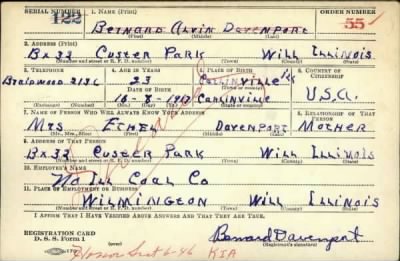 SERIAL NUMBER 1. NAME (Print) ORDER NUMBER
122 BERNARD ALVIN DAVENPORT 55
2. ADDRESS (Print)
Bx 33 CUSTER PARK WILL ILLINOIS
(Number and street or R. F. D. number) (Town) (County) (State)
3. TELEPHONE 4. AGE IN YEARS 5. PLACE OF BIRTH 6. COUNTRY OF CITIZENSHIP
BRAIDWOOD 213L 23 CARLINVILLE
DATE OF BIRTH U.S.A.
CARLINVILLE
7. NAME OF PERSON WHO WILL ALWAYS KNOW YOUR ADDRESS 8. RELATIONSHIP OF THAT PERSON
MRS ETHEL DAVENPORT MOTHER
(Mr., Mrs., Miss) (First) (Middle) (Last)
9. ADDRESS OF THAT PERSON
Bx 33 CUSTER PARK WILL ILLINOIS
(Number and street or R. F. D. number) (Town) (County) (State)
10. EMPLOYER'S NAME
NO ILL COAL CO
11. PLACE OF EMPLOYMENT OR BUSINESS
WILMINGTON WILL ILLINOIS
(Number and street or R. F. D. number) (Town) (County) (State)
I AFFIRM THAT I HAVE VERIFIED ABOVE ANSWERS AND THAT THEY ARE TRUE.
REGISTRATION CARD
D. S. S. Form 1 Bernard Davenport
(Registrant's signature)
Honor List 6-46 KIA